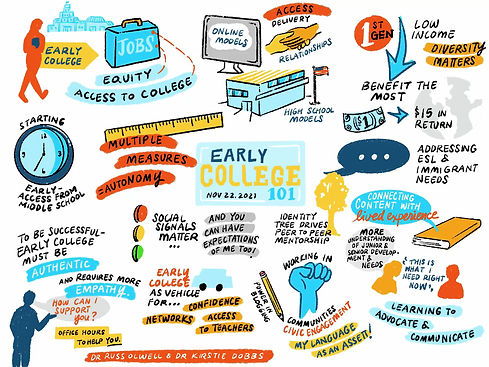 EARLY
COLLEGE
JOBS
EQUITY
ACCESS TO COLLEGE
ONLINE
MODELS
ACCESS
DELIVERY
RELATIONSHIPS
HIGH SCHOOL
MODELS
1ST
GEN
LOW
INCOME
DIVERSITY
MATTERS
BENEFIT THE
MOST
$15 IN
RETURN
STARTING
EARLY-
ACCESS FROM
MIDDLE SCHOOL
MULTIPLE
MEASURES
=AUTONOMY
EARLY
COLLEGE
NOV 22.2021
101
ADDRESSING
ESL &
IMMIGRANT
NEEDS
TO BE SUCCESSFUL-
EARLY COLLEGE
MUST BE
AUTHENTIC
AND REQUIRES MORE
EMPATHY
HOW CAN I
SUPPORT
YOU?
OFFICE HOURS
TO HELP YOU.
SOCIAL
SIGNALS
MATTER
...
AND YOU
CAN HAVE
EXPECTATIONS
OF ME TOO!
IDENTITY
TREE DRIVES
PEER TO PEER
MENTORSHIP
CONNECTING
CONTENT WITH
lived experience
MORE
UNDERSTANDING
OF JUNIOR &
SENIOR DEVELOP-
MENT &
NEEDS
"THIS IS
WHAT I
NEED RIGHT
NOW"
EARLY
COLLEGE
AS VEHICLE
FOR...
NETWORKS
CONFIDENCE
ACCESS
TO TEACHERS
POWER IN
BELONGING
WORKING IN
COMMUNITIES
CIVIC ENGAGEMENT
MY LANGUAGE
AS AN ASSET!
LEARNING TO
ADVOCATE &
COMMUNICATE
DR RUSS OLWELL & DR KIRSTIE DOBBS